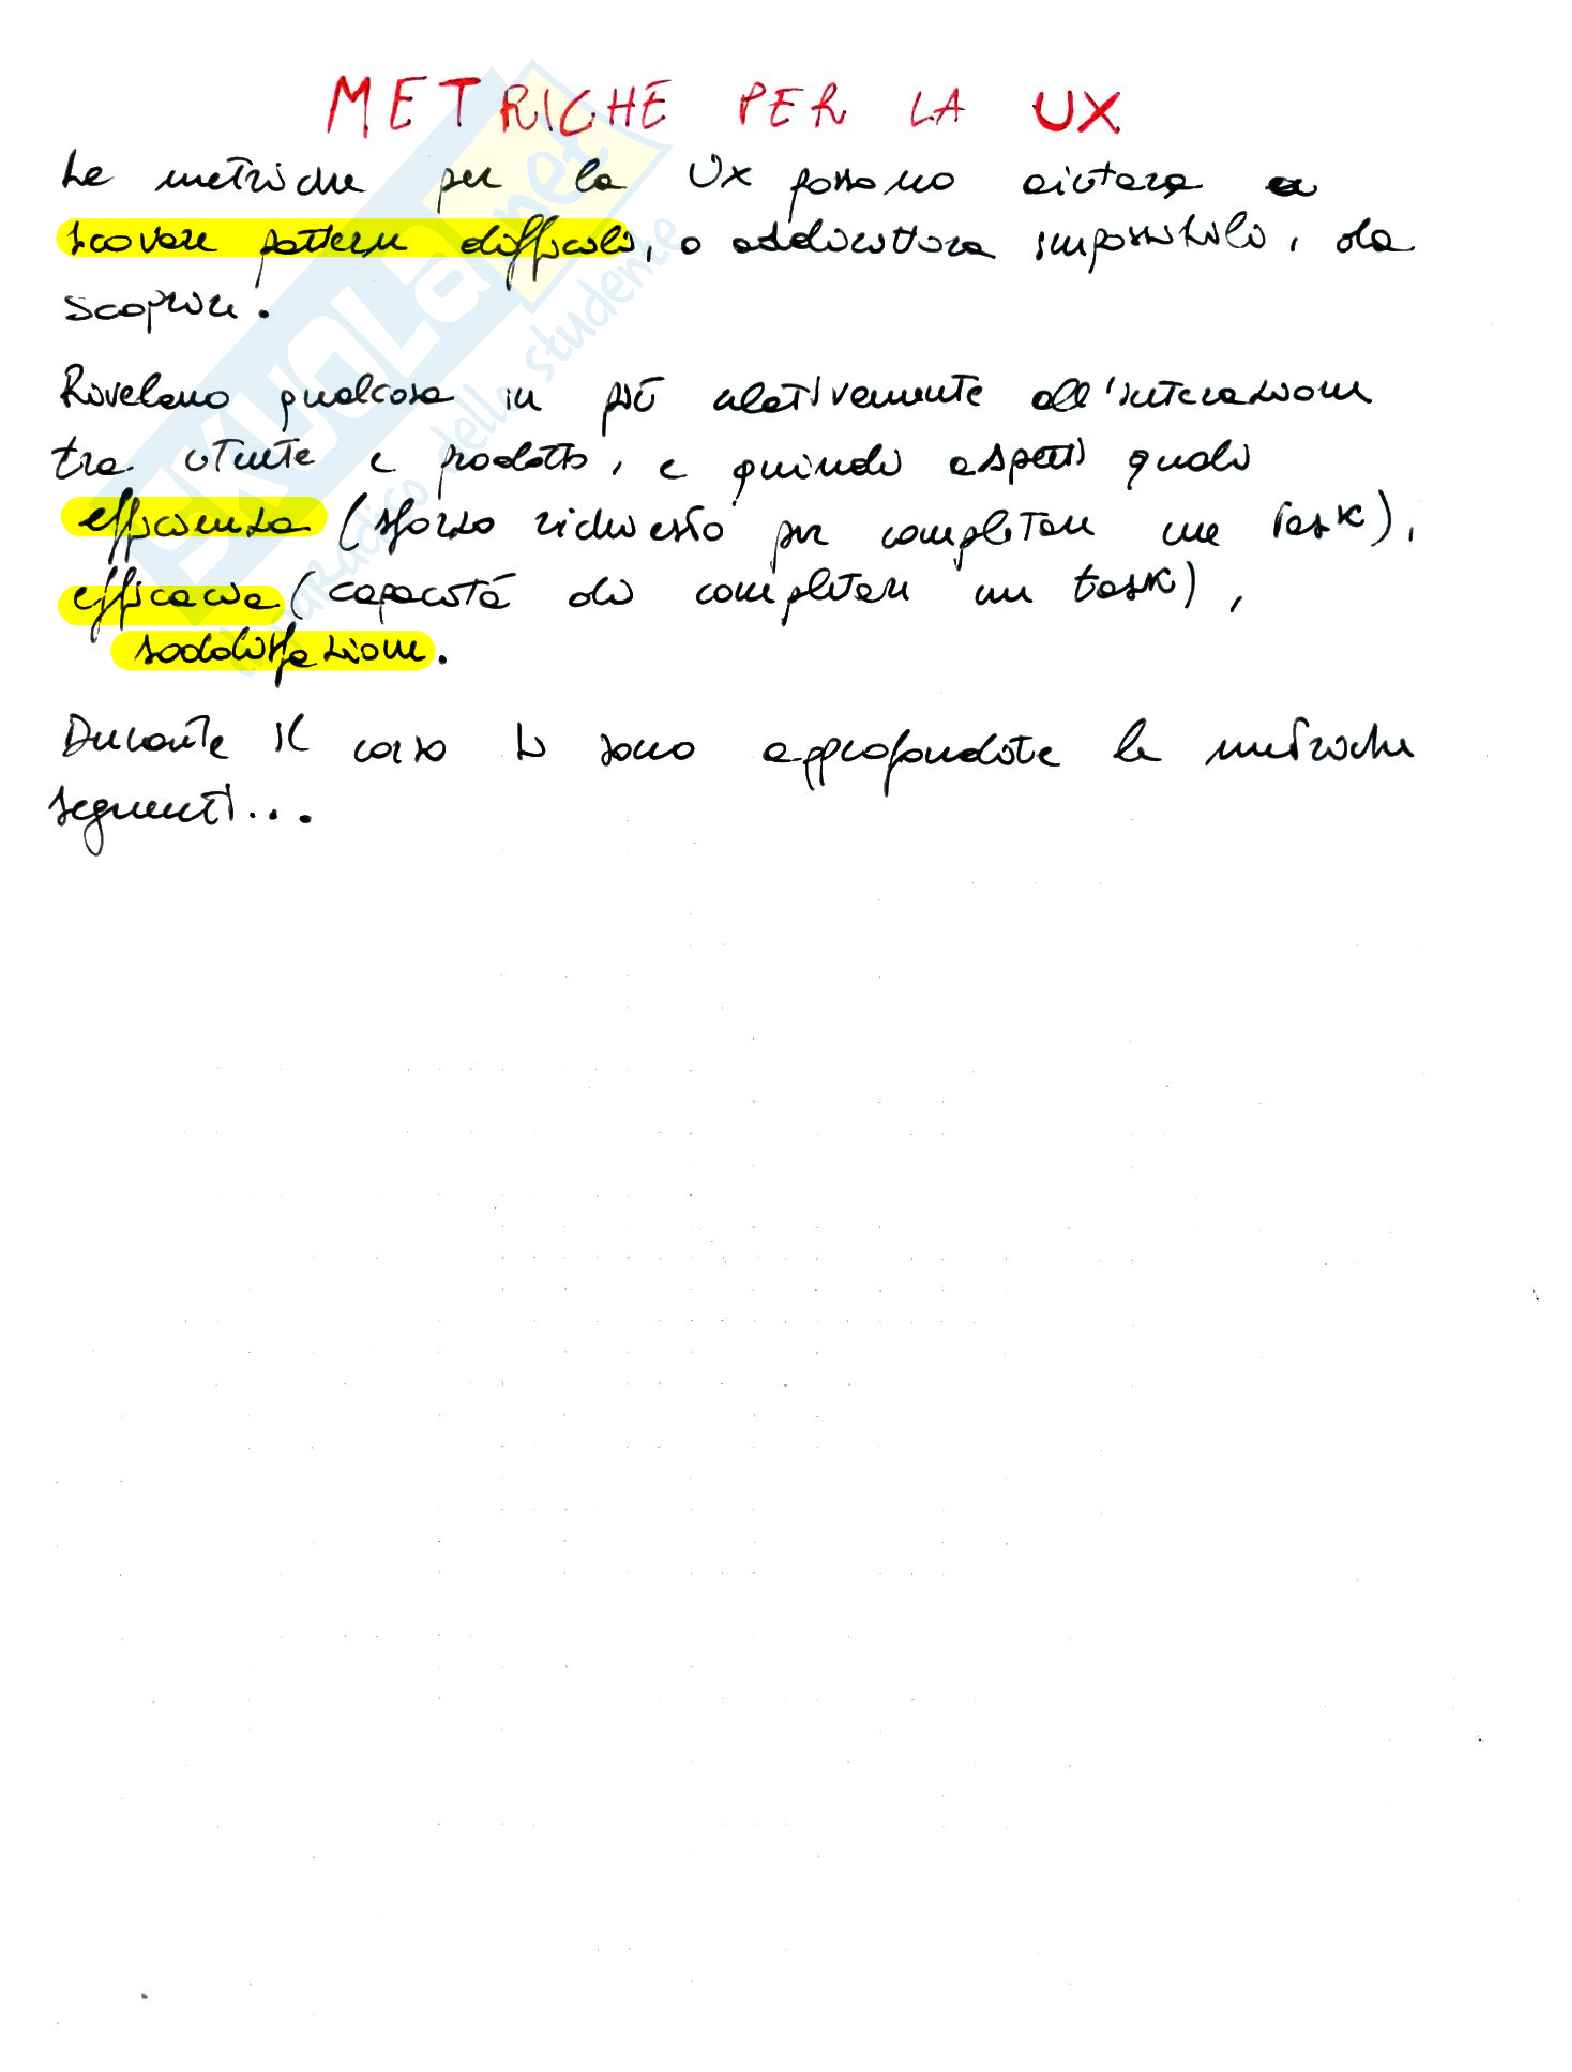 METRICHE PER LA UX
Le metriche per la UX possono aiutare a
scovare pattern difficili, o addirittura impossibili, da
scoprire.
Rivelano qualcosa in più relativamente all'interazione
tra utente e prodotto, e quindi aspetti quali
efficienza (sforzo richiesto per completare un task),
efficacia (capacità di completare un task),
soddisfazione.
Durante il corso si sono approfondite le metriche
seguenti...
SKUOLA.net
il paradiso dello studente